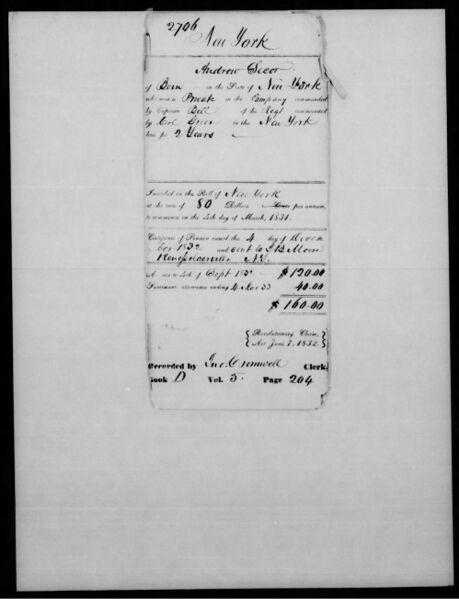 2706
New York
Andrew Secor
of in the State of New York
who was a Private in the Company commanded
by Captain Bell of the Regt commanded
by Col. in the New York
line for 2 Years
Inscribed on the Roll of New York
at the rate of 80 Dollars per annum,
to commence on the 4th day of March, 1831.
Certificate of Pension issued the 4 day of Decem
ber 1832 and sent to
N.Y.
Arrears to 4th of Sept 1832 $120.00
Semi-anl. allowance ending 4 Mar 33 40.00
$160.00
Revolutionary Claim,
Act June 7, 1832.
Recorded by Jno. Cromwell Clerk,
Book D Vol. 5. Page 204